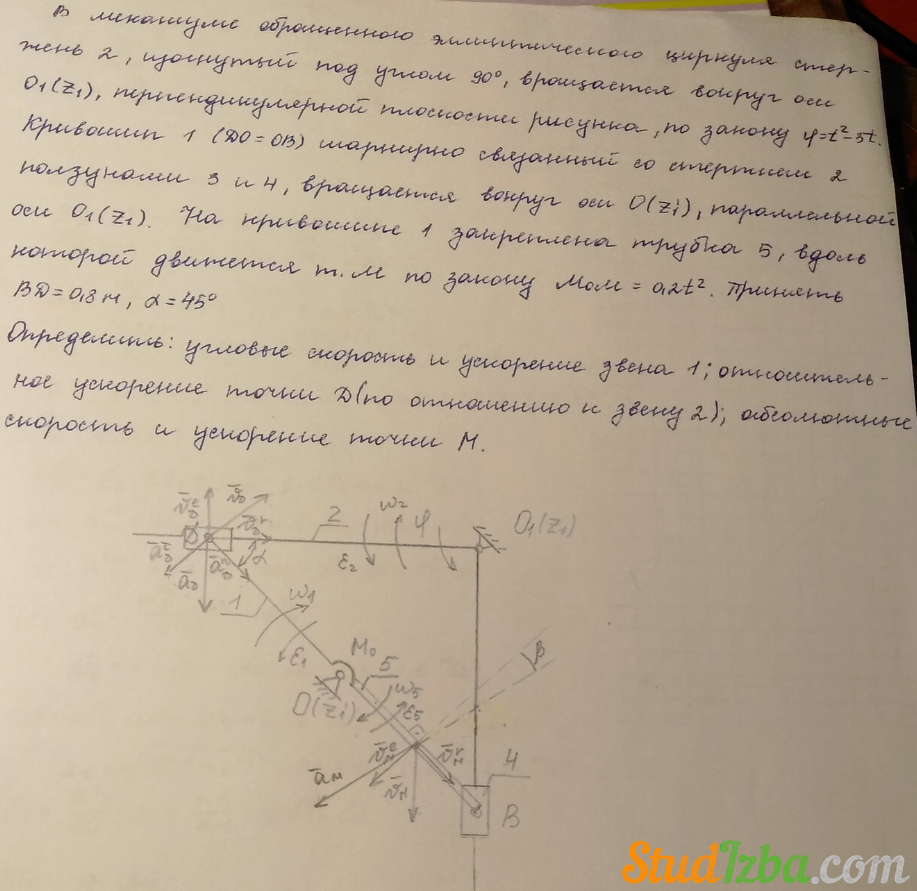 В механизме обращенного эллиптического циркуля стер-
жень 2, изогнутый под углом 90°, вращается вокруг оси
O1(Z1), перпендикулярной плоскости рисунка, по закону φ=t²-5t.
Кривошип 1 (DO=OB) шарнирно связанный со стержнем 2
ползунами 3 и 4, вращается вокруг оси O(Zi), параллельной
оси O1(Z1). На кривошипе 1 закреплена трубка 5, вдоль
которой движется т. М по закону МоМ = 0,2t². Принять
BD=0,8м, α=45°
Определить: угловые скорость и ускорение звена 1; относитель-
ное ускорение точки D (по отношению к звену 2); абсолютные
скорость и ускорение точки М.
v̄ᵉD v̄D v̄ʳD 2 ω2 φ O1(Z1)
āD α ε2
1 ω1
ε1 Mo 5
O(Zi) ω5 ε5 β
āM v̄ᵉM v̄M v̄ʳM 4
B
StudIzba.com